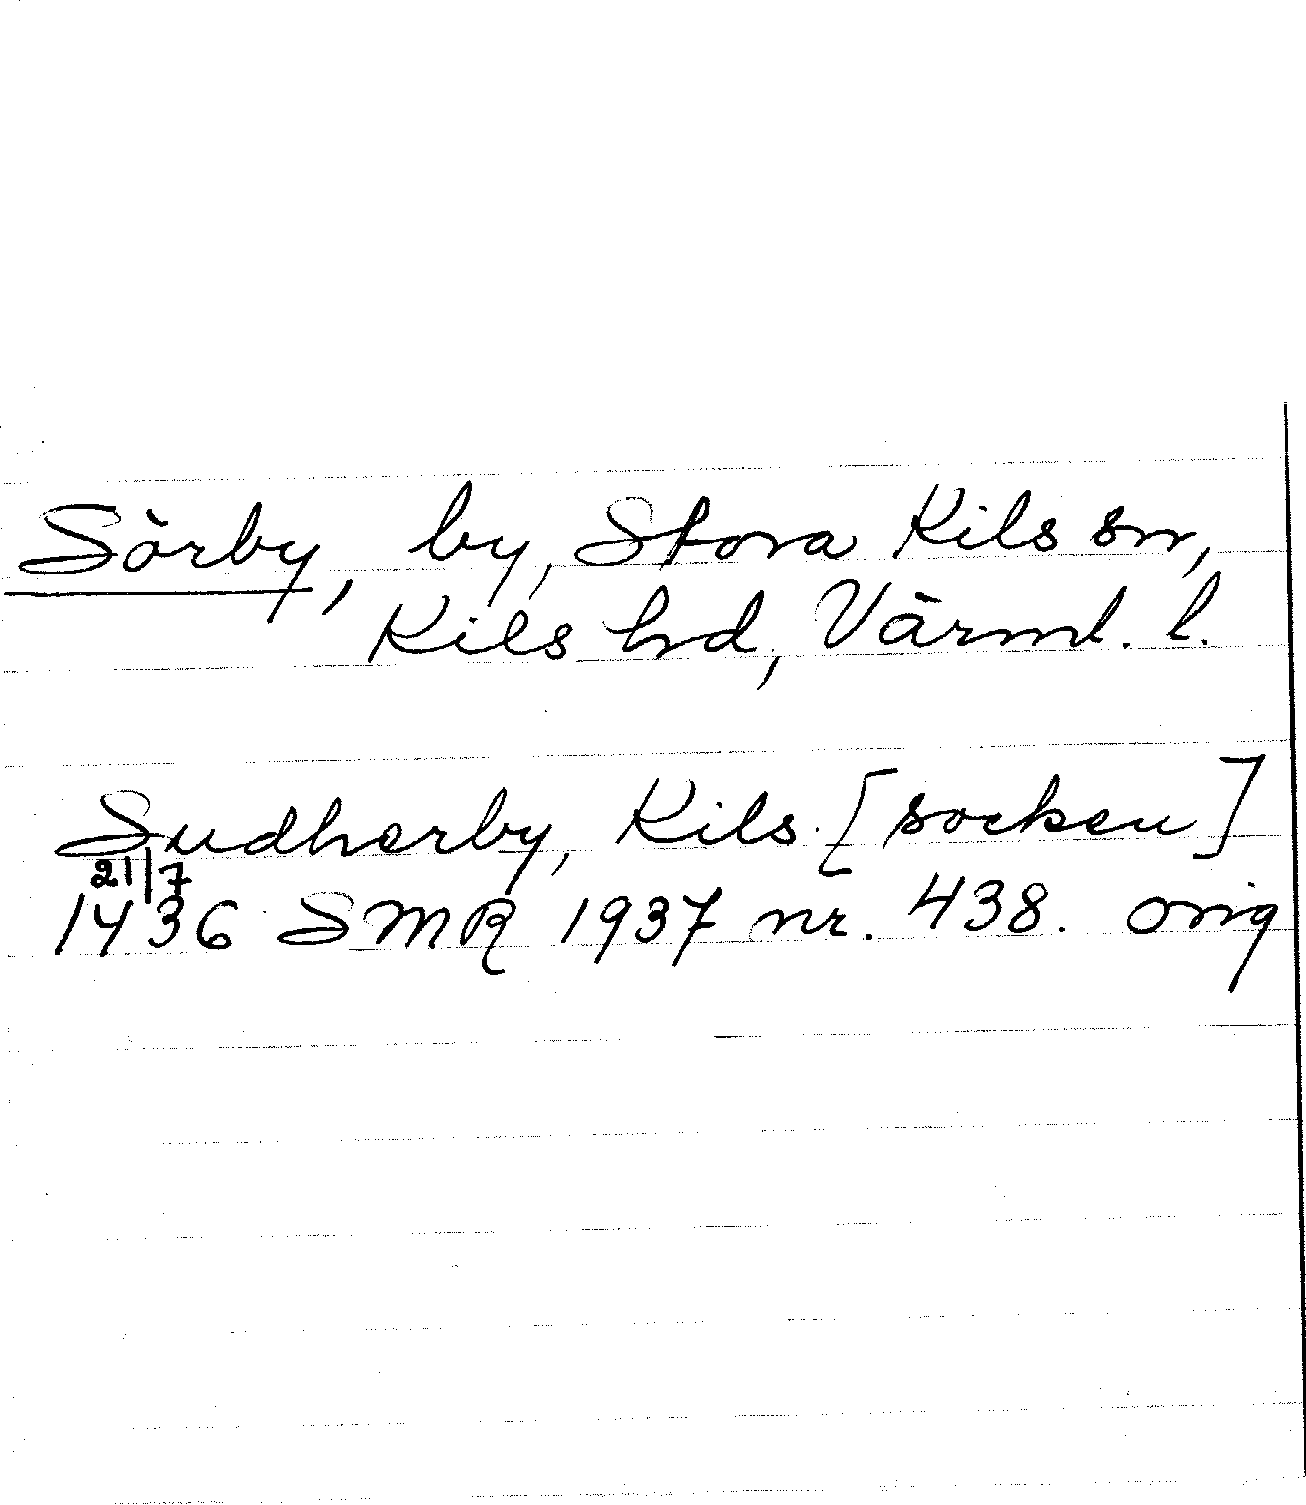 Sörby, by, Stora Kils sn,
Kils hd, Värml. l.
Sudherby, Kils [socken]
21/7
1436 SMR 1937 nr. 438. orig